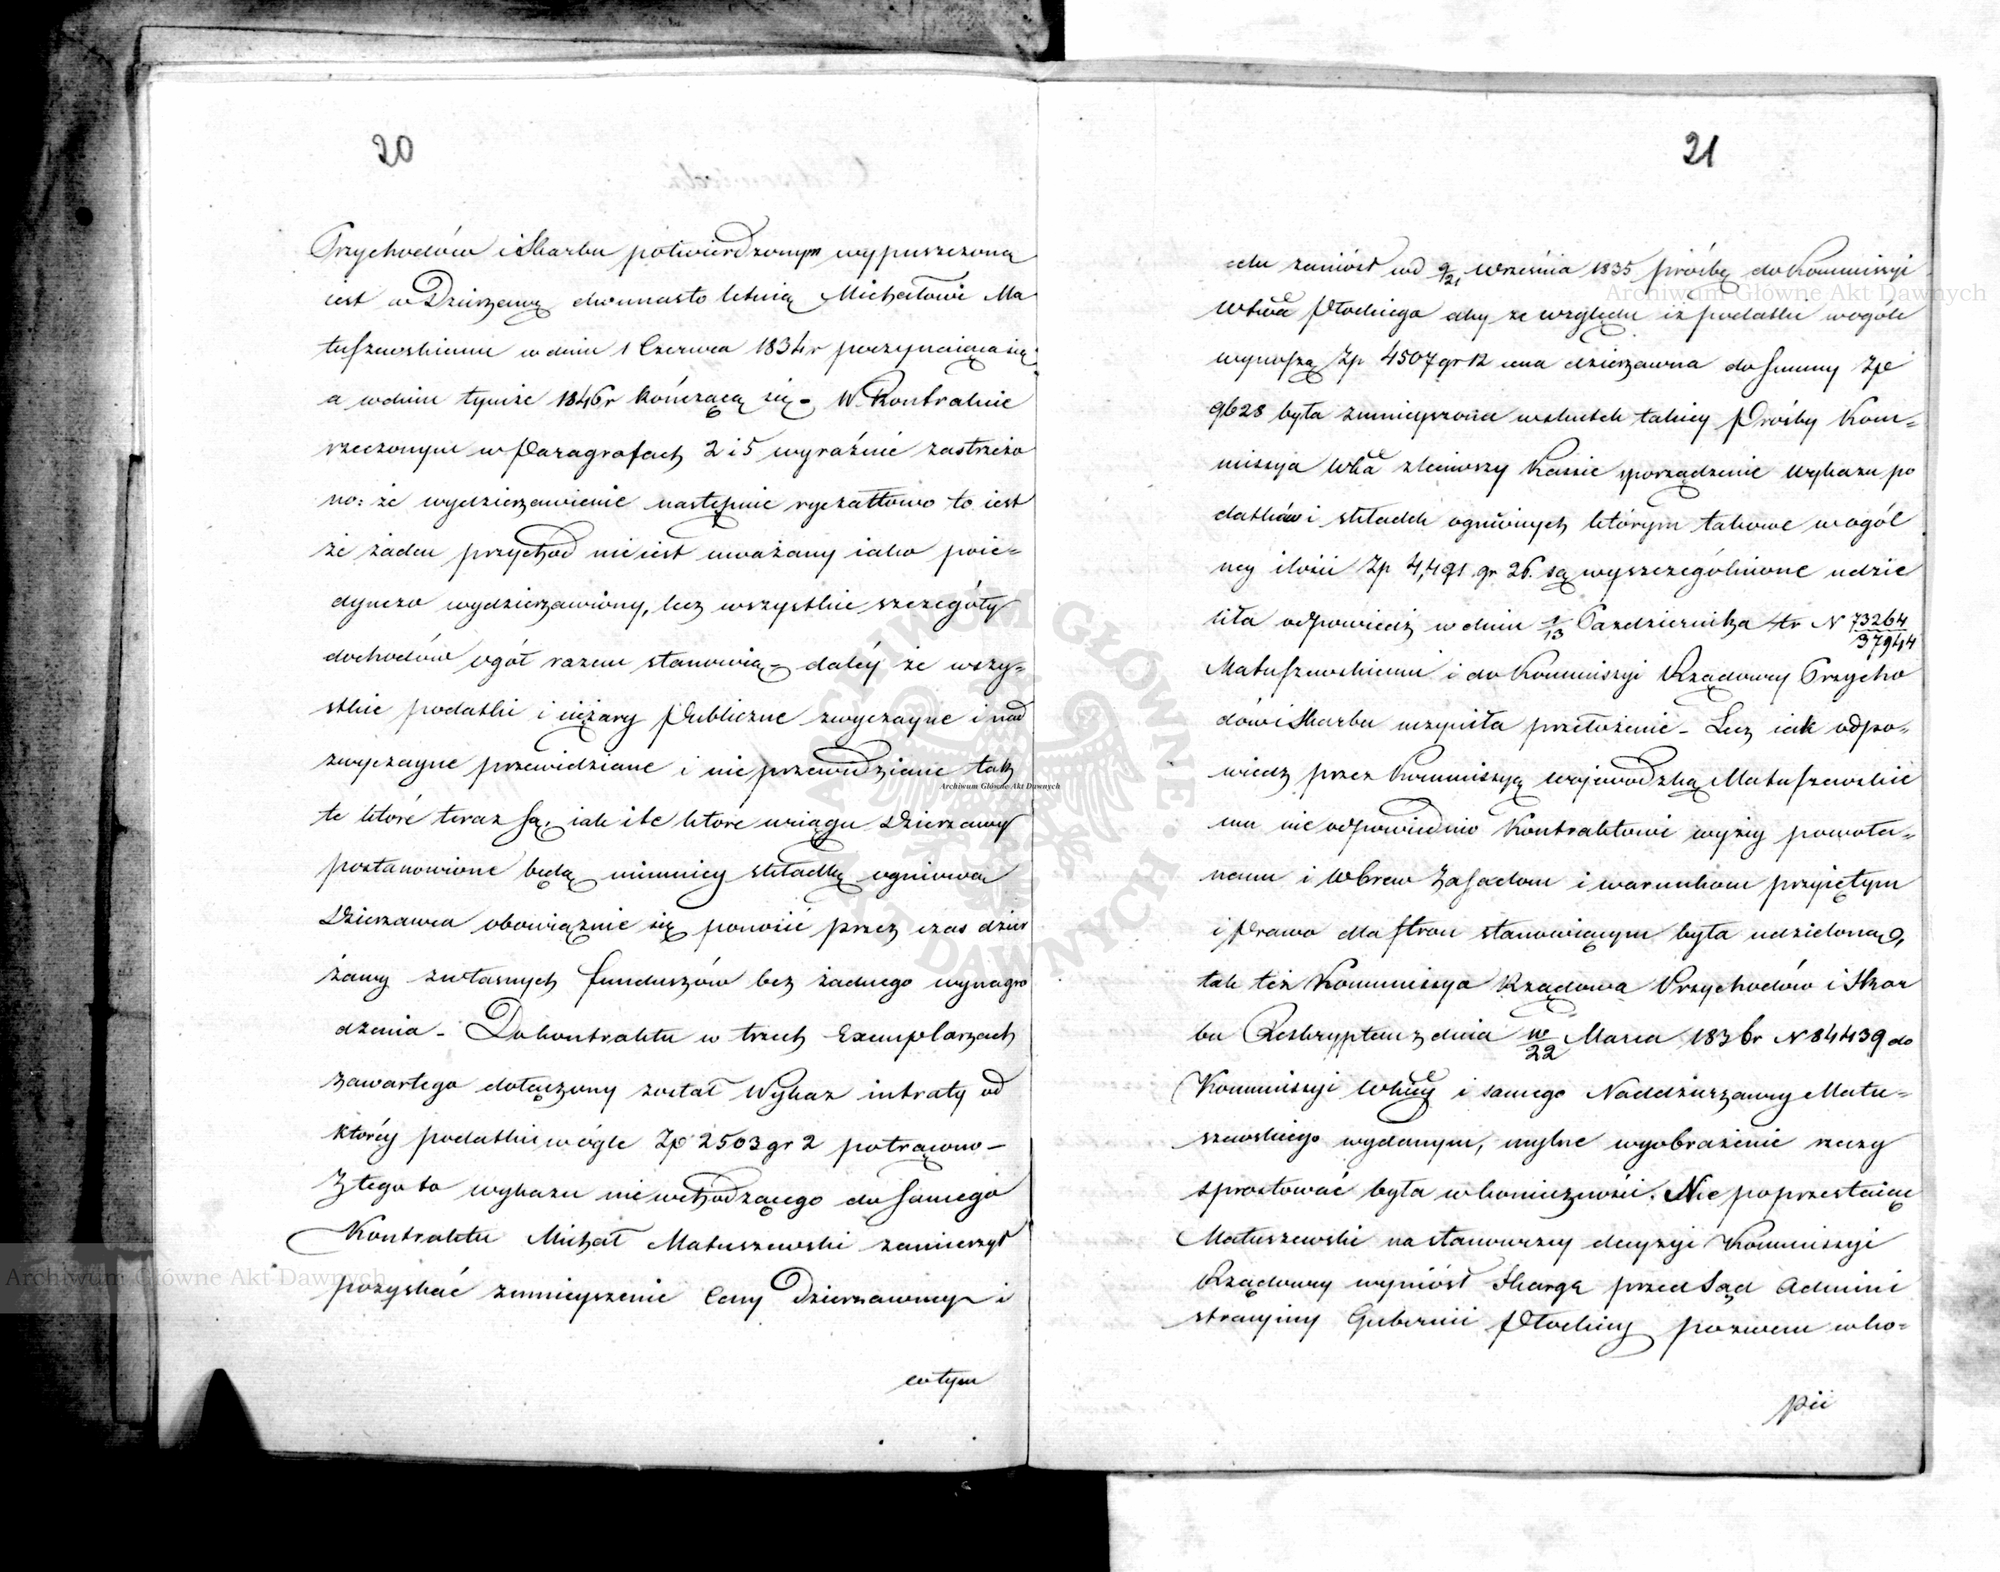 20
Przychodów i Skarbu potwierdzonym wypuszczoną
iest w Dzierżawę dwunasto letnią Michałowi Ma
tuszewskiemu w dniu 1 Czerwca 1834 r poczynaiącą się
a w dniu tymże 1846 r kończącą się - W Kontrakcie
rzeczonym w Paragrafach 2 i 5 wyraźnie zastrzeżo
no: że wydzierżawienie następuie ryczałtowo to iest
że żaden przychod nie iest uważany iako poie=
dynczo wydzierżawiony, lecz wszystkie szczegóły
dochodów ogół razem stanowią - daléy że wszy=
stkie podatki i ciężary Publiczne zwyczayne i nad
zwyczayne przewidziane i nie przewidziane tak
te któré teraz są, iak i te któré w ciągu Dzierżawy
postanowione będą niemniey składkę ogniową
Dzierżawca obowiązuie się ponosić przez czas dzier
żawy z własnych funduszów bez żadnego wynagro
dzenia - Do kontraktu w trzech Exemplarzach
zawartego dołączony został Wykaz intraty od
któréy podatki w ogóle Zp 2503 gr 2 potrącono -
Z tego to wykazu nie wchodzącego do samego
Kontraktu Michał Matuszewski zamierzył
pozyskać zmnieyszenie Ceny Dzierżawney i
w tym
21
celu zaniósł pod 9/21 Września 1835 prośbę do Kommissyi
Wtwa Płockiego aby ze względu iż podatki w ogóle
wynoszą Zp 4507 gr 12 cena dzierżawna do summy Zp
9628 była zmnieyszona wskutek takiey Prośby Kom=
missya Wka zleciwszy Kassie sporządzenie Wykazu po
datków i składek ogniowych którym takowe w ogól
ney ilości Zp 4,491 gr 26. są wyszczególnione udzie
liła odpowiedz w dniu 1/13 Pazdziernika tr N 73264/37944
Matuszewskiemu i do Kommissyi Rządowey Przycho
dów i Skarbu uczyniła przełożenie - Lecz iak odpo=
wiedz przez Kommissyą Wojewodzką Matuszewskie
mu nie odpowiednio Kontraktowi wyżey powoła=
nemu i Wbrew Zasadom i warunkom przyiętym
i Prawo dla stron stanowiącym była udzieloną,
tak też Kommissya Rządowa Przychodów i Skar
bu Reskryptem z dnia 10/22 Marca 1836 r N 84439 do
Kommissyi Wkiey i samego Naddzierżawcy Matu=
szewskiego wydanym, mylne wyobrażenie rzeczy
sprostować była w konieczności. Nie poprzestaiąc
Matuszewski na stanowczey decyzyi Kommissyi
Rządowey wyniósł Skargę przed Sąd Admini
stracyiny Gubernii Płockiey pozwem w ko=
pii